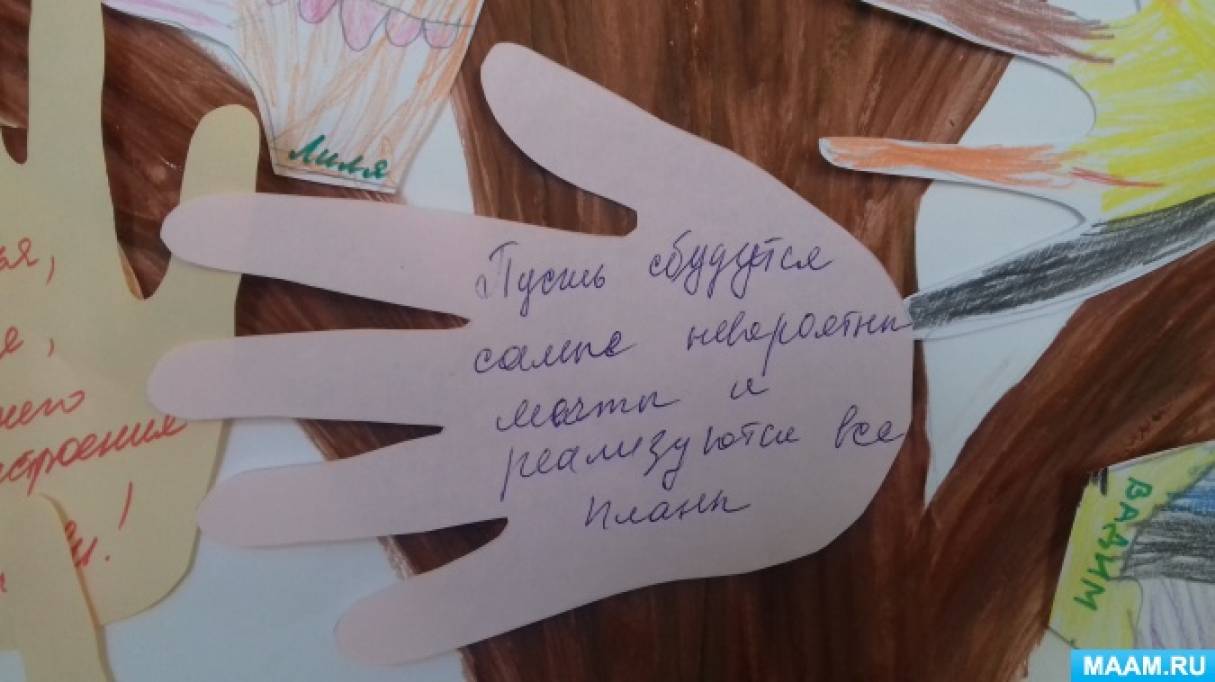 Лилья
ья,
е,
него
строения
!
Пусть сбудутся
самые невероятны
мечты и
реализуются все
планы
ВАДИМ
MAAM.RU